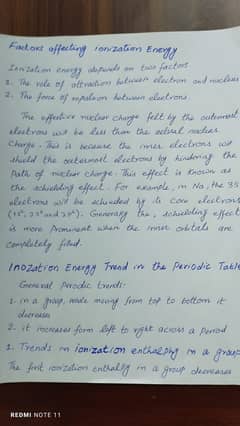 Factors affecting ionization Energy
Ionization energy depends on two factors
1. The role of attraction between electron and nucleus
2. The force of repulsion between electrons.
The effective nuclear charge felt by the outermost
electrons will be less than the actual nuclear
charge. This is because the inner electrons will
shield the outermost electrons by hindering the
Path of nuclear charge. This effect is known as
the schielding effect. For example, in Na, the 3S
electrons will be schielded by its core electrons
(1s², 2s² and 2p⁶). Generally the, schielding effect
is more Prominent when the inner orbitals are
completely filled.
INOZation Energy Trend in the Periodic Table
General Periodic trends:
1. in a group, while moving from top to bottom it
decreases
2. it increases form left to right across a period
1. Trends in ionization enthalphy in a group
The first ionization enthallpy in a group decreases
REDMI NOTE 11